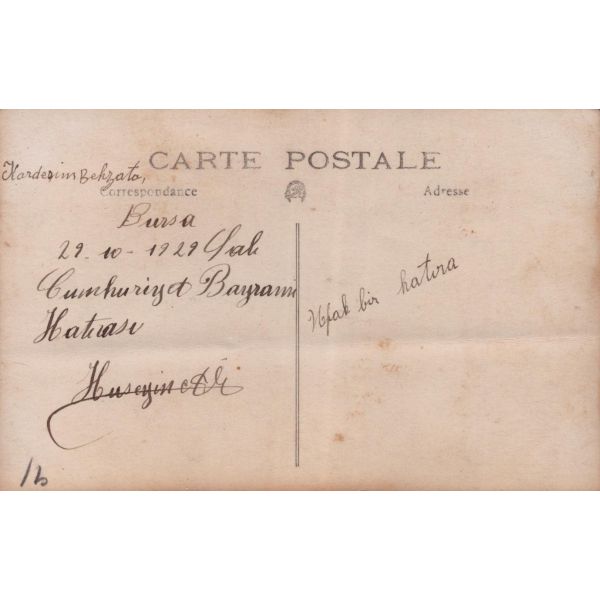 CARTE POSTALE
Kardesim Behzata,
Correspondance
Adresse
Bursa
29-10-1929 Salı
Cumhuriyet Bayramı
Hatırası
Huseyin Ali
Ufak bir hatıra
16